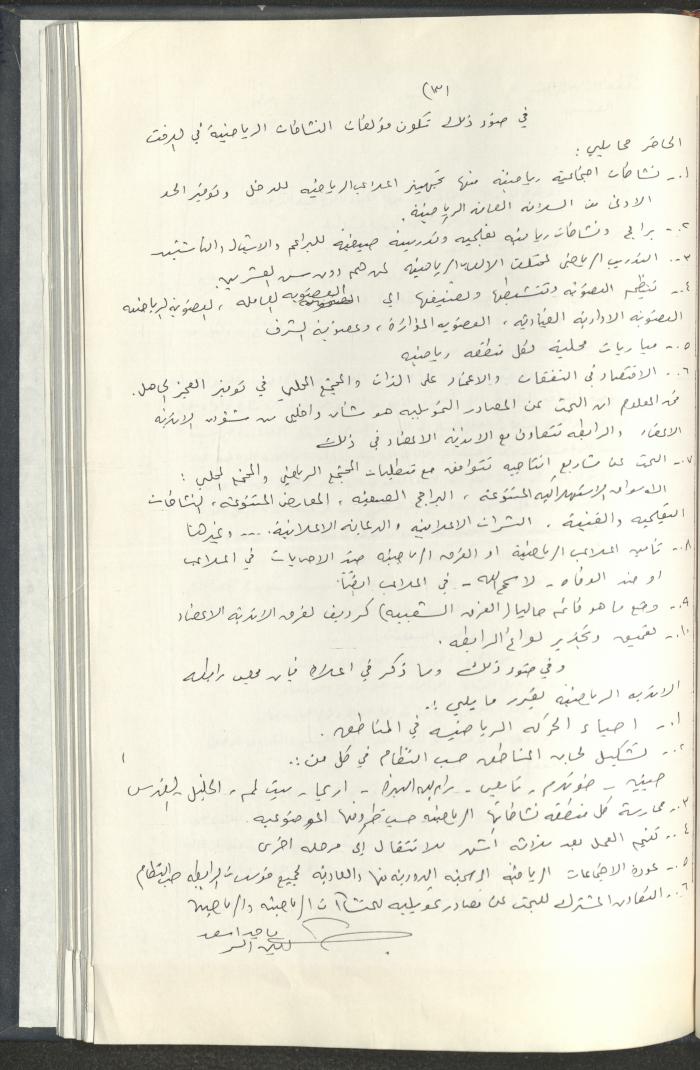 (٣)
في ضوء ذلك تكون مؤلفات النشاطات الرياضية في الوقت
الحاضر كما يلي :
١- نشاطات اجتماعية رياضية منها تجهيز الملاعب الرياضية للدخل وتوفير الحد
الادنى من السلامة العامة الرياضية .
٢- برامج ونشاطات رياضية تعليمية وتدريبية صيفية للبراعم والاشبال والناشئين
٣- التدريب الرياضي لمختلف الالعاب الرياضية لمن هم دون سن العشرين .
٤- تنظيم العضوية وتنشيطها وتصنيفها الى العضوية العاملة ، العضوية الرياضية
العضوية الادارية القيادية ، العضوية المؤازرة ، وعضوية الشرف
٥- مباريات محلية لكل منطقة رياضية
٦- الاقتصاد في النفقات والاعتماد على الذات والمجتمع المحلي في توفير العجز الحاصل .
فمن المعلوم ان البحث عن المصادر التمويلية هو شأن داخلي من شؤون الاندية
الاعضاء والرابطة تتعاون مع الاندية الاعضاء في ذلك
٧- البحث عن مشاريع انتاجية تتوافق مع متطلبات المجتمع الرياضي والمجتمع المحلي :
الاسواق الاستهلاكية المتنوعة ، البرامج الصيفية ، المعارض المتنوعة ، النشاطات
التعليمية والفنية ، النشرات الاعلامية والدعاية الاعلانية .... وغيرها
٨- تأمين الملاعب الرياضية او الفرق الرياضية ضد الاصابات في الملاعب
او ضد الوفاة - لا سمح الله - في الملاعب ايضاً .
٩- وضع ما هو قائم حاليا (الفرق الشعبية) كرديف لفرق الاندية الاعضاء
١٠- تعميق وتجذير لوائح الرابطة .
وفي ضوء ذلك وما ذكر في اعلاه فان مجلس رابطة
الاندية الرياضية يقرر ما يلي :.
١- احياء الحركة الرياضية في المناطق .
٢- تشكيل لجان المناطق حسب النظام في كل من :.
جنين - طولكرم - نابلس - رام الله البيرة - اريحا - بيت لحم - الخليل - القدس
٣- ممارسة كل منطقة نشاطاتها الرياضية حسب ظروفها الموضوعية .
٤- تقييم العمل بعد ثلاثة أشهر للانتقال الى مرحلة اخرى
٥- عودة الاجتماعات الرياضية الرسمية الدورية منها والعادية لجميع مؤسسات الرابطة حسب النظام
٦- التعاون المشترك للبحث عن مصادر تمويلية للمنشآت الرياضية والرياضيين
ماجد اسعد
امين السر